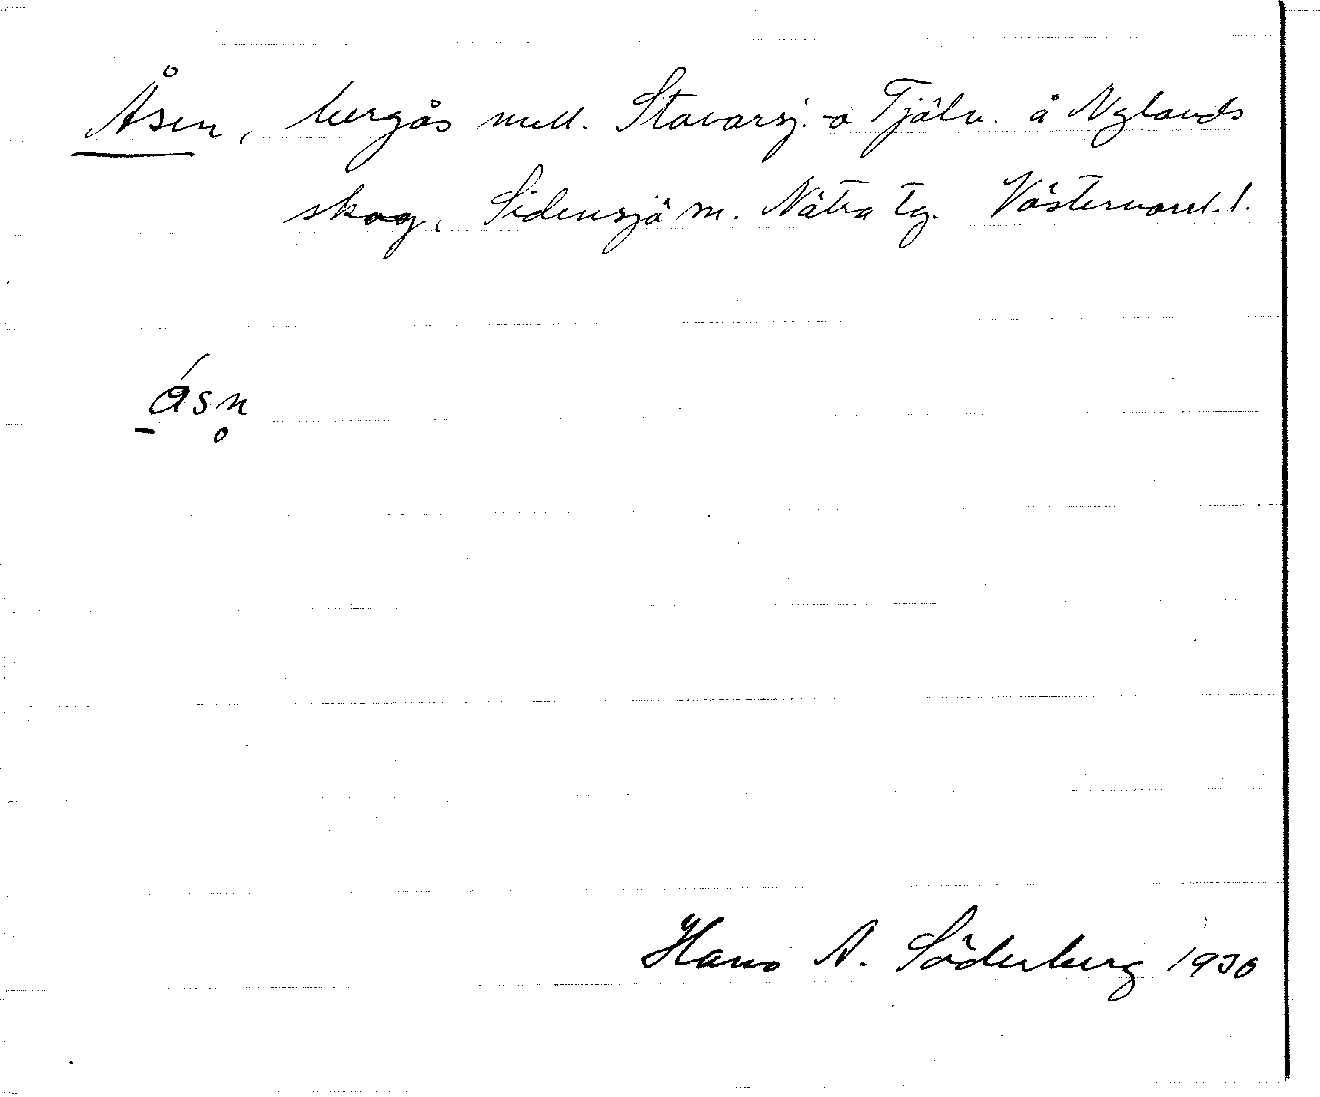 Åsen, bergås mell. Stavarsj. o Tjäln. å Nylands
skog, Sidensjö sn. Nätra tg. Västernorrl. l.
ásn̥
Hans A. Söderberg 1930